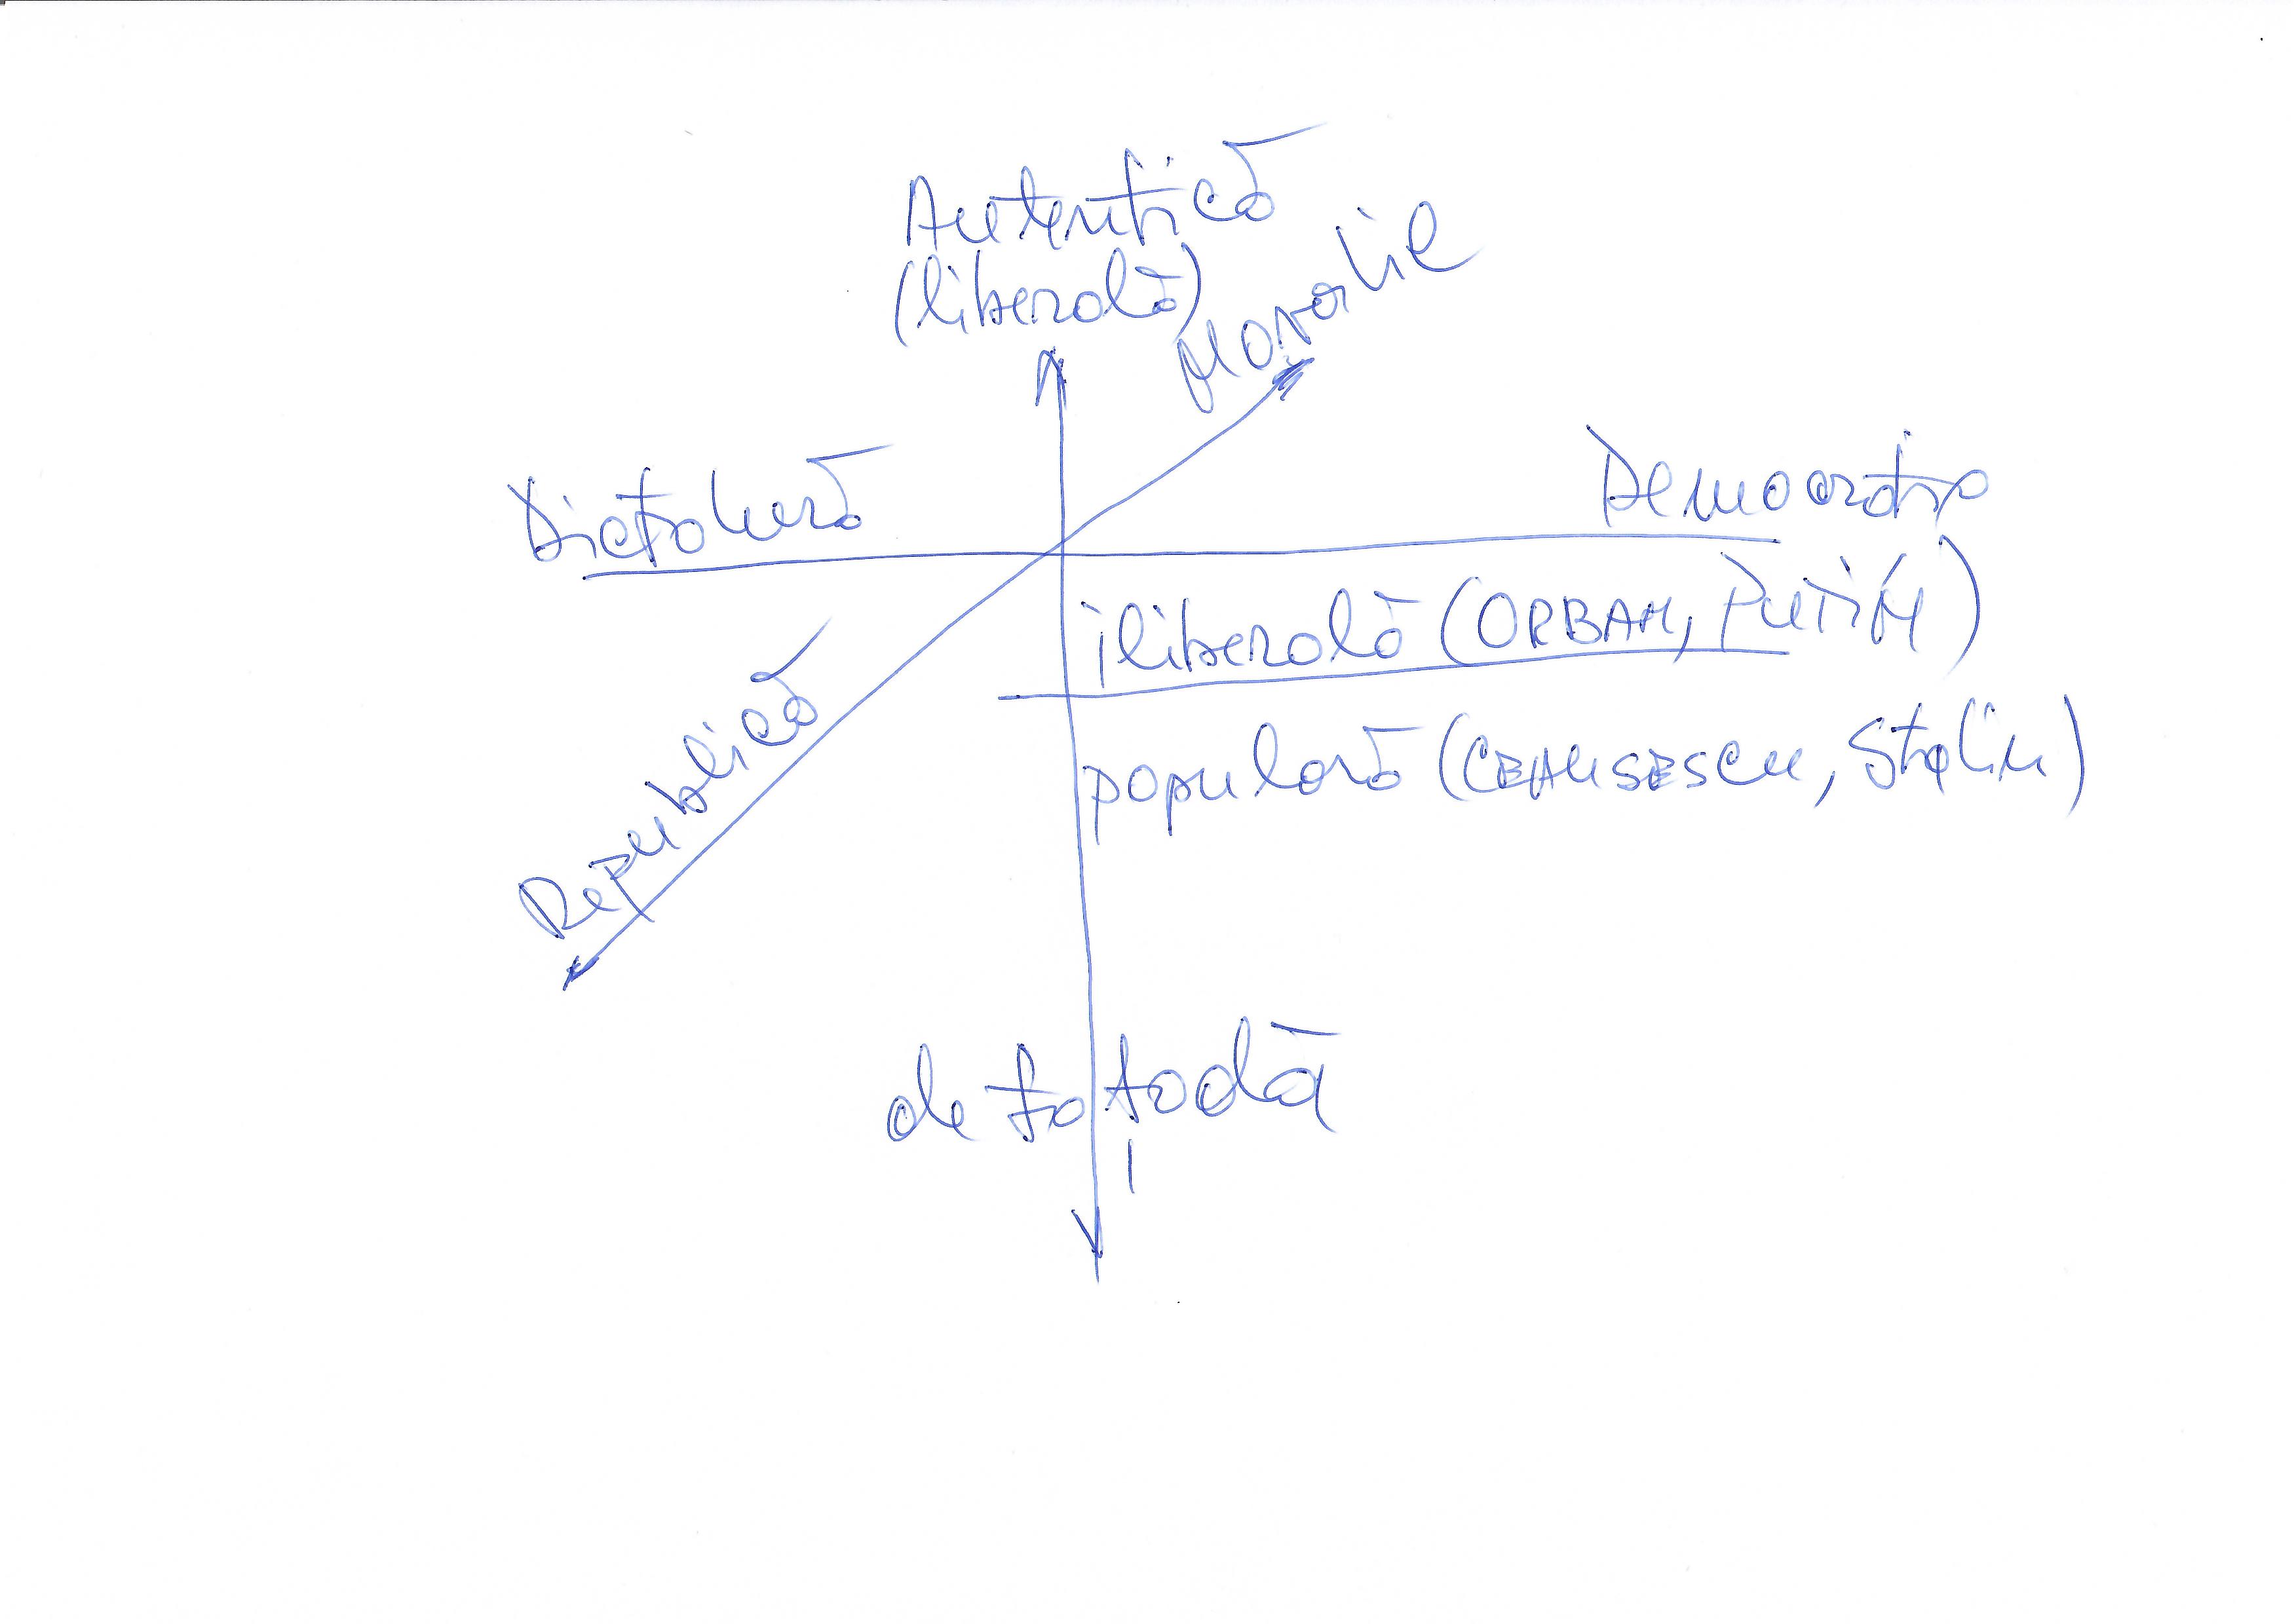 Autentică
(liberală)
Monarhie
Dictatură
Democrația
iliberală (ORBAN, PUTIN)
populară (CEAUSESCU, Stalin)
Republică
de fațadă